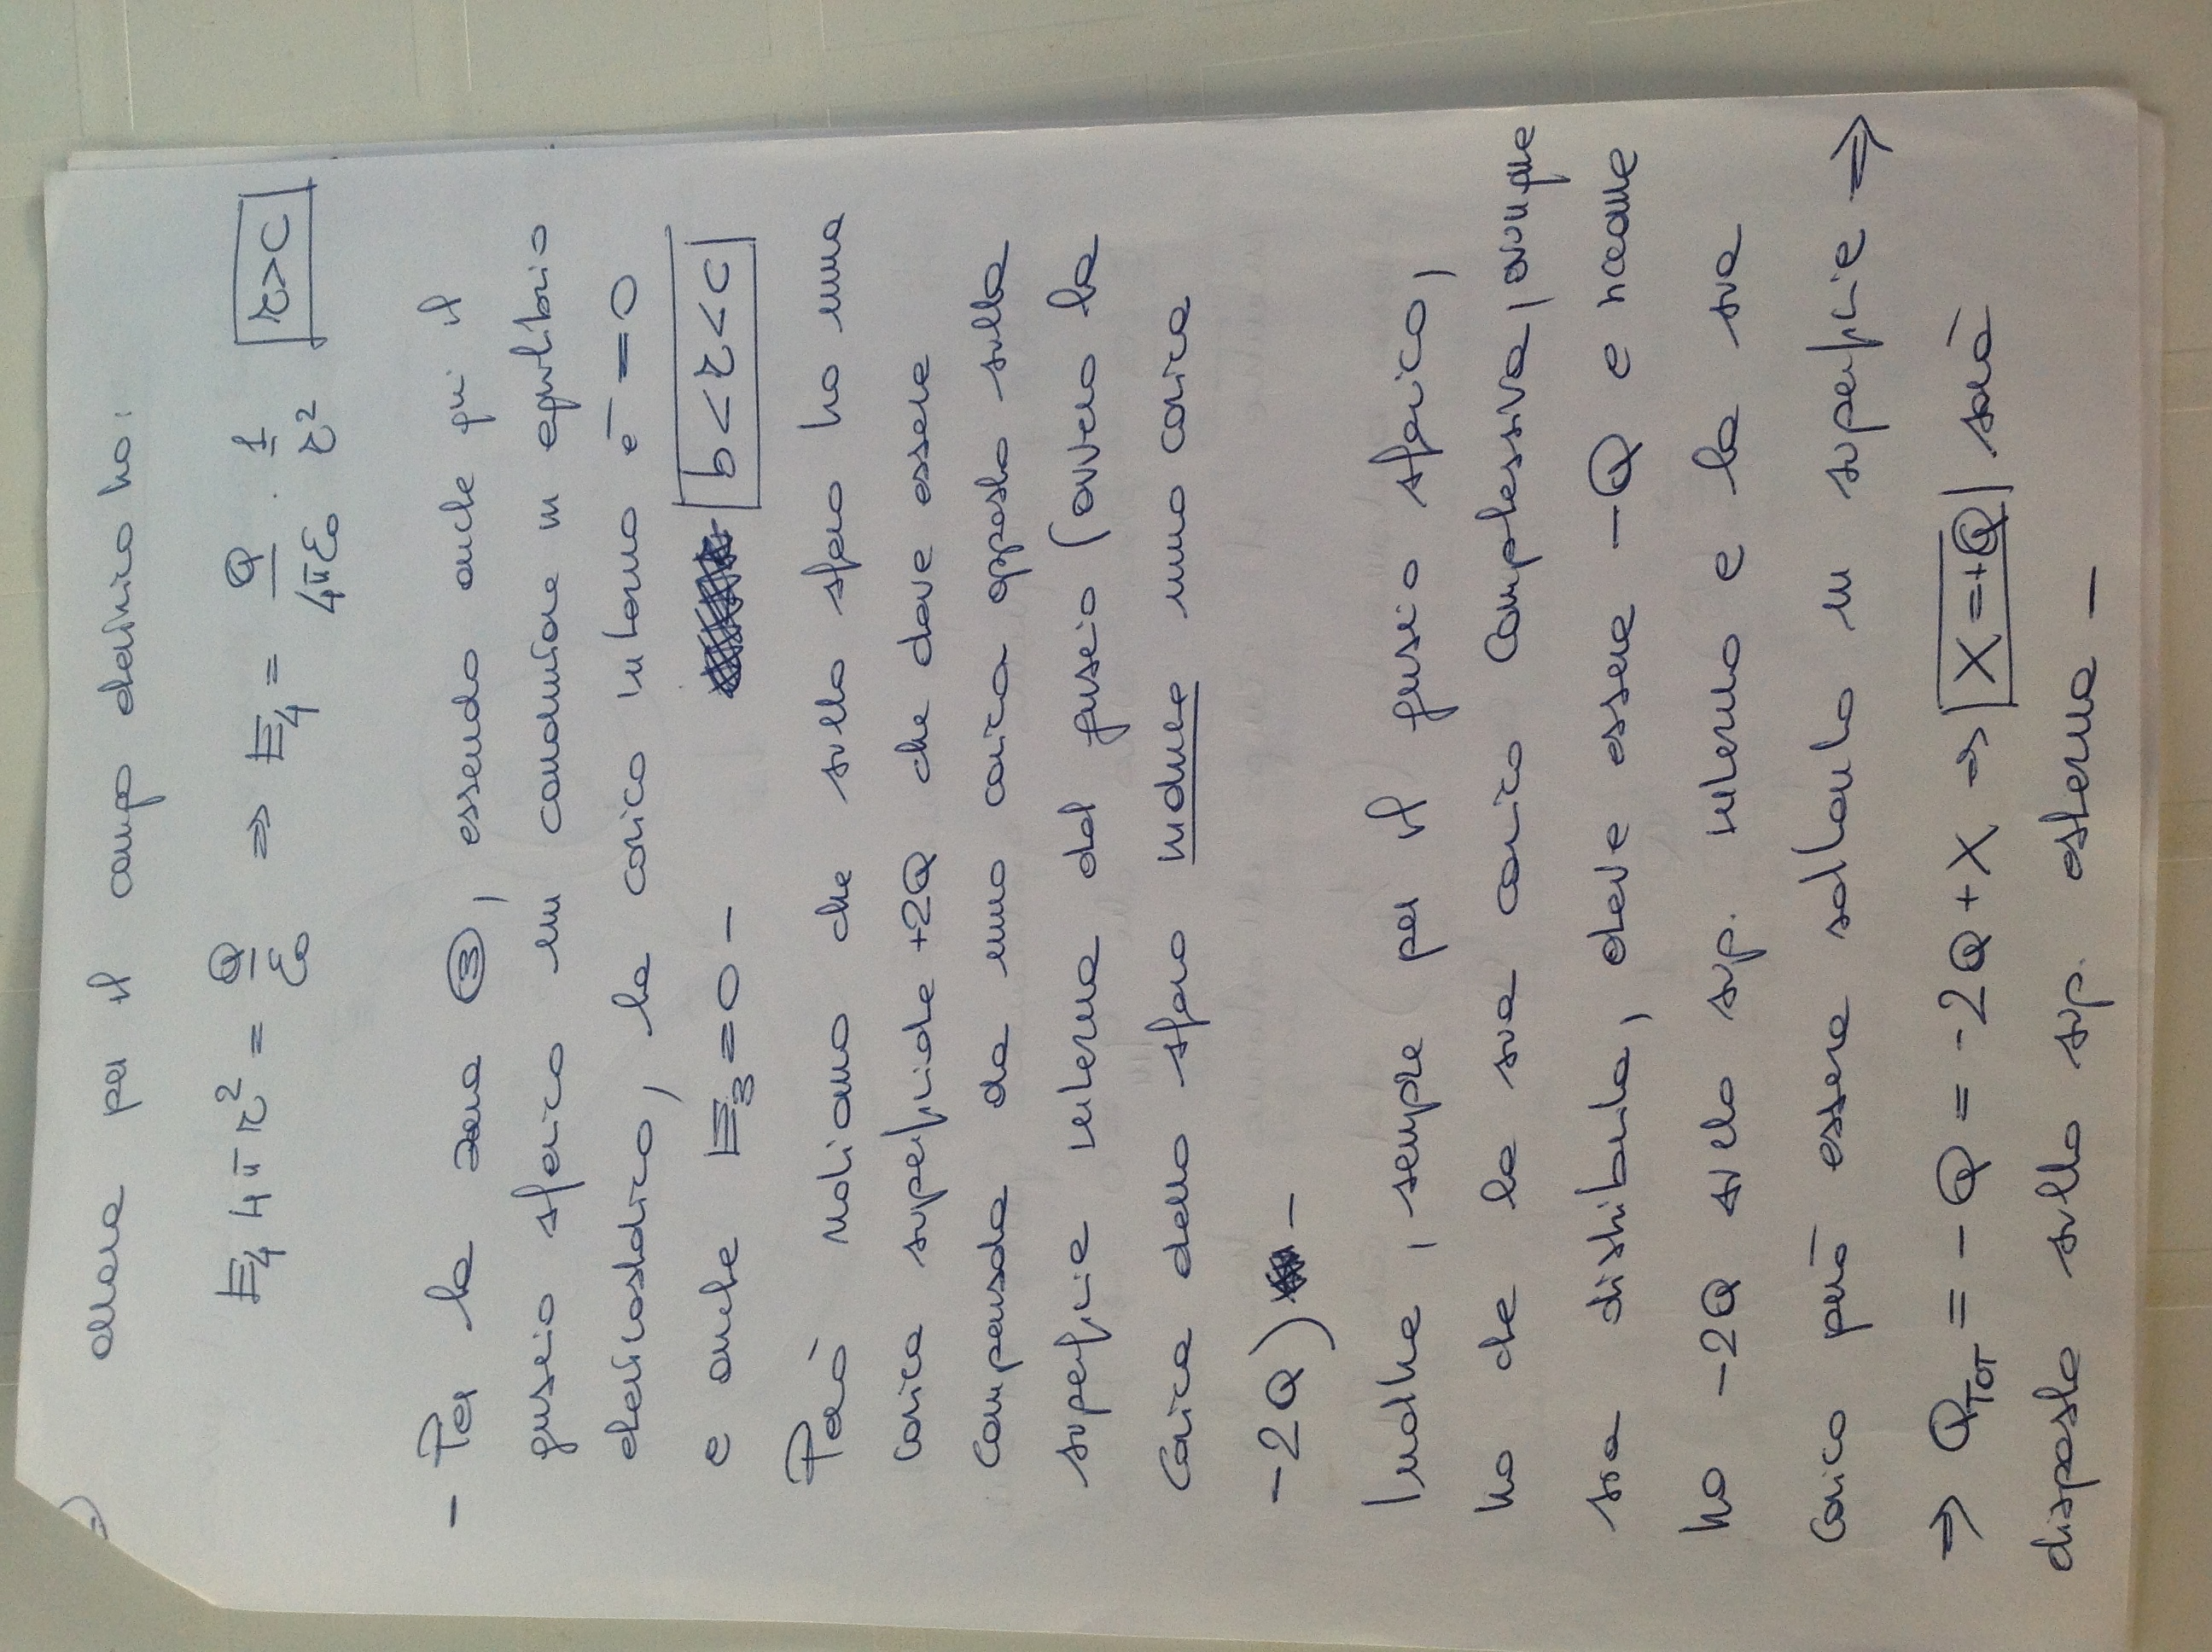 allora per il campo elettrico ho:
E₄ 4πr² = Q/ε₀ ⇒ E₄ = Q/4πε₀ · 1/r² r>c
- Per la zona ③, essendo anche qui il
guscio sferico un conduttore in equilibrio
elettrostatico, la carica interna è = 0
e anche E₃ = 0 - b<r<c
Però notiamo che sulla sfera ho una
carica superficiale +2Q che deve essere
compensata da una carica opposta sulla
superficie interna del guscio (ovvero la
carica della sfera induce una carica
-2Q) -
Inoltre, sempre per il guscio sferico,
ho che la sua carica complessiva, ovunque
sia distribuita, deve essere -Q e siccome
ho -2Q sulla sup. interna e la sua
carica può essere soltanto in superficie ⇒
⇒ Q_TOT = -Q = -2Q + X ⇒ X = +Q sarà
disposta sulla sup. esterna -